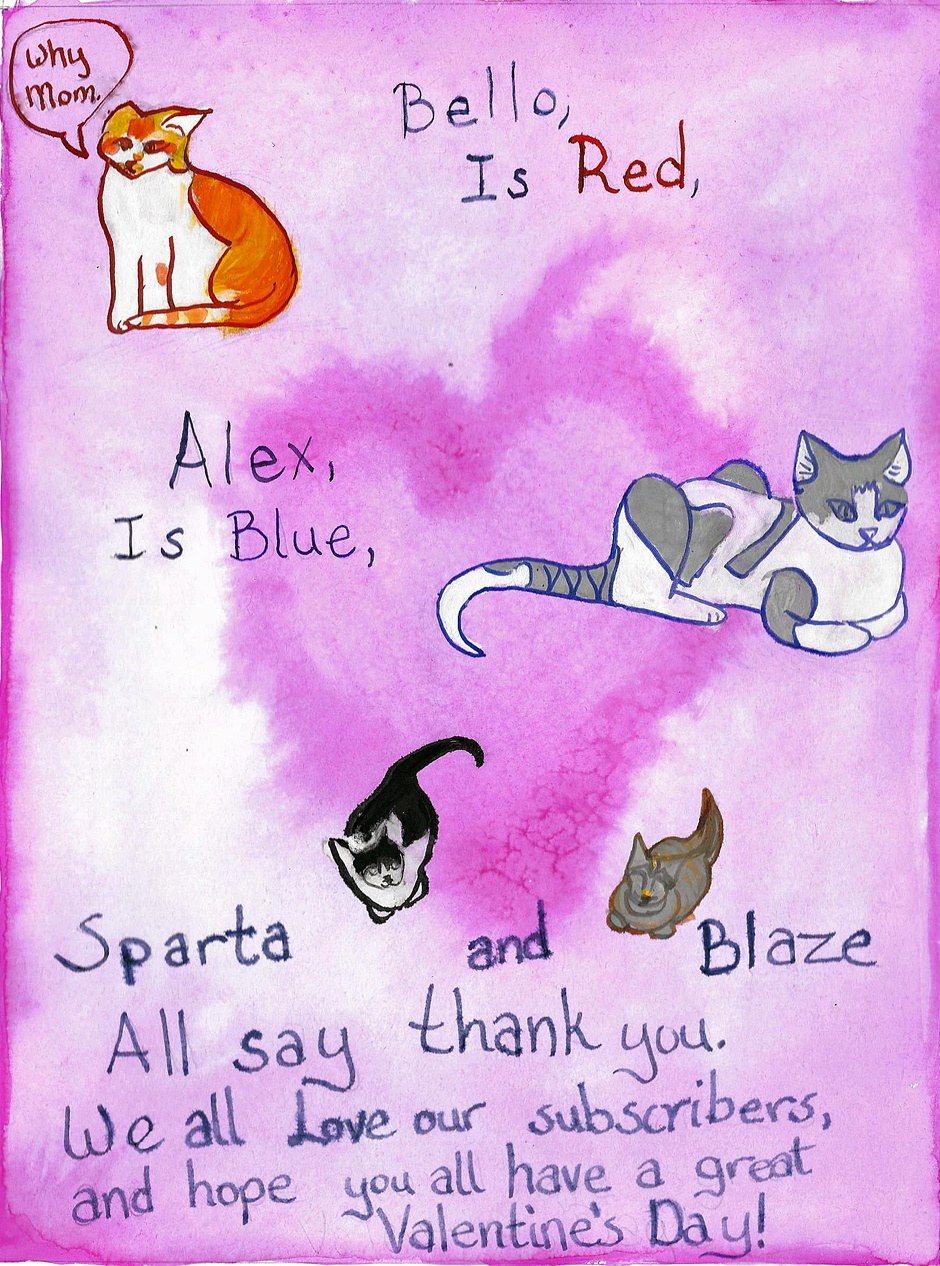 Why
Mom.
Bello,
Is Red,
Alex,
Is Blue,
Sparta and Blaze
All say thank you.
We all Love our subscribers,
and hope you all have a great
Valentine's Day!